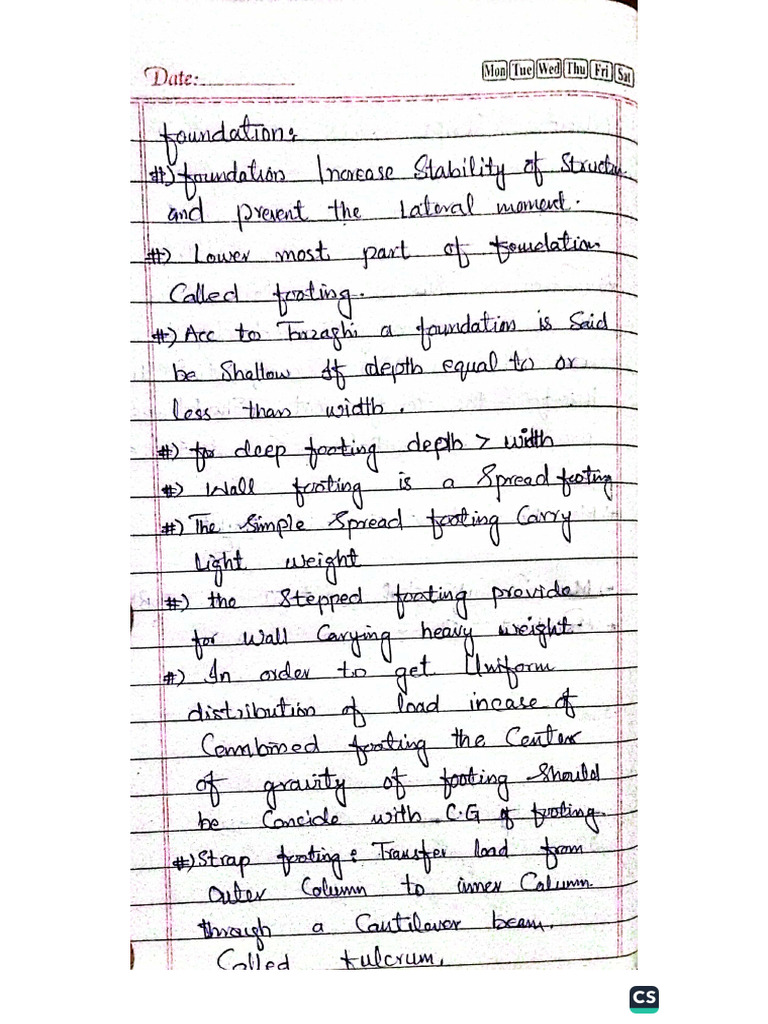 Date:
Mon Tue Wed Thu Fri Sat
foundation:
#) foundation Increase Stability of Structu
and prevent the Lateral moment.
#) Lower most part of foundation
Called footing.
#) Acc to Trzaghi a foundation is Said
be Shallow If depth equal to or
less than width.
#) for deep footing depth > width
#) Wall footing is a Spread footing
#) The Simple Spread footing Carry
Light weight
#) the Stepped footing provide
for Wall Carying heavy weight.
#) In order to get Uniform
distribution of load incase of
Combined footing the Center
of gravity of footing Should
be Concide with C.G of footing.
#) Strap footing: Transfer load from
outer Column to inner Column.
through a Cantilever beam.
Called fulcrum.
CS